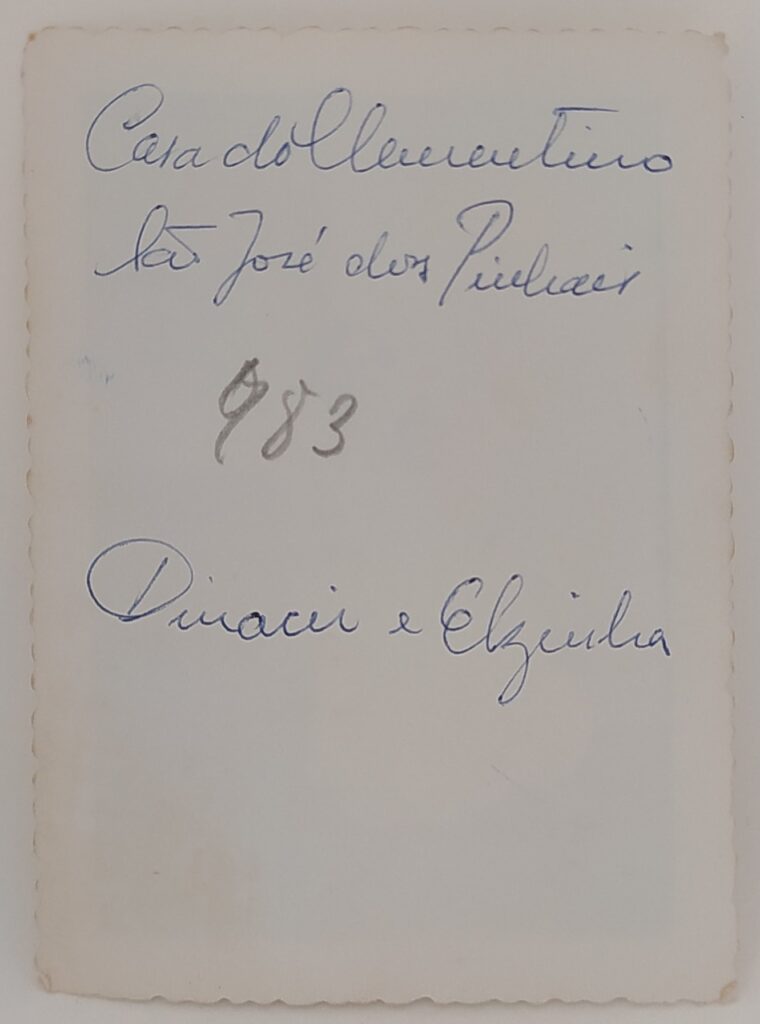 Casa do Clementino
São José dos Pinhais
983
Dinacir e Elzinha